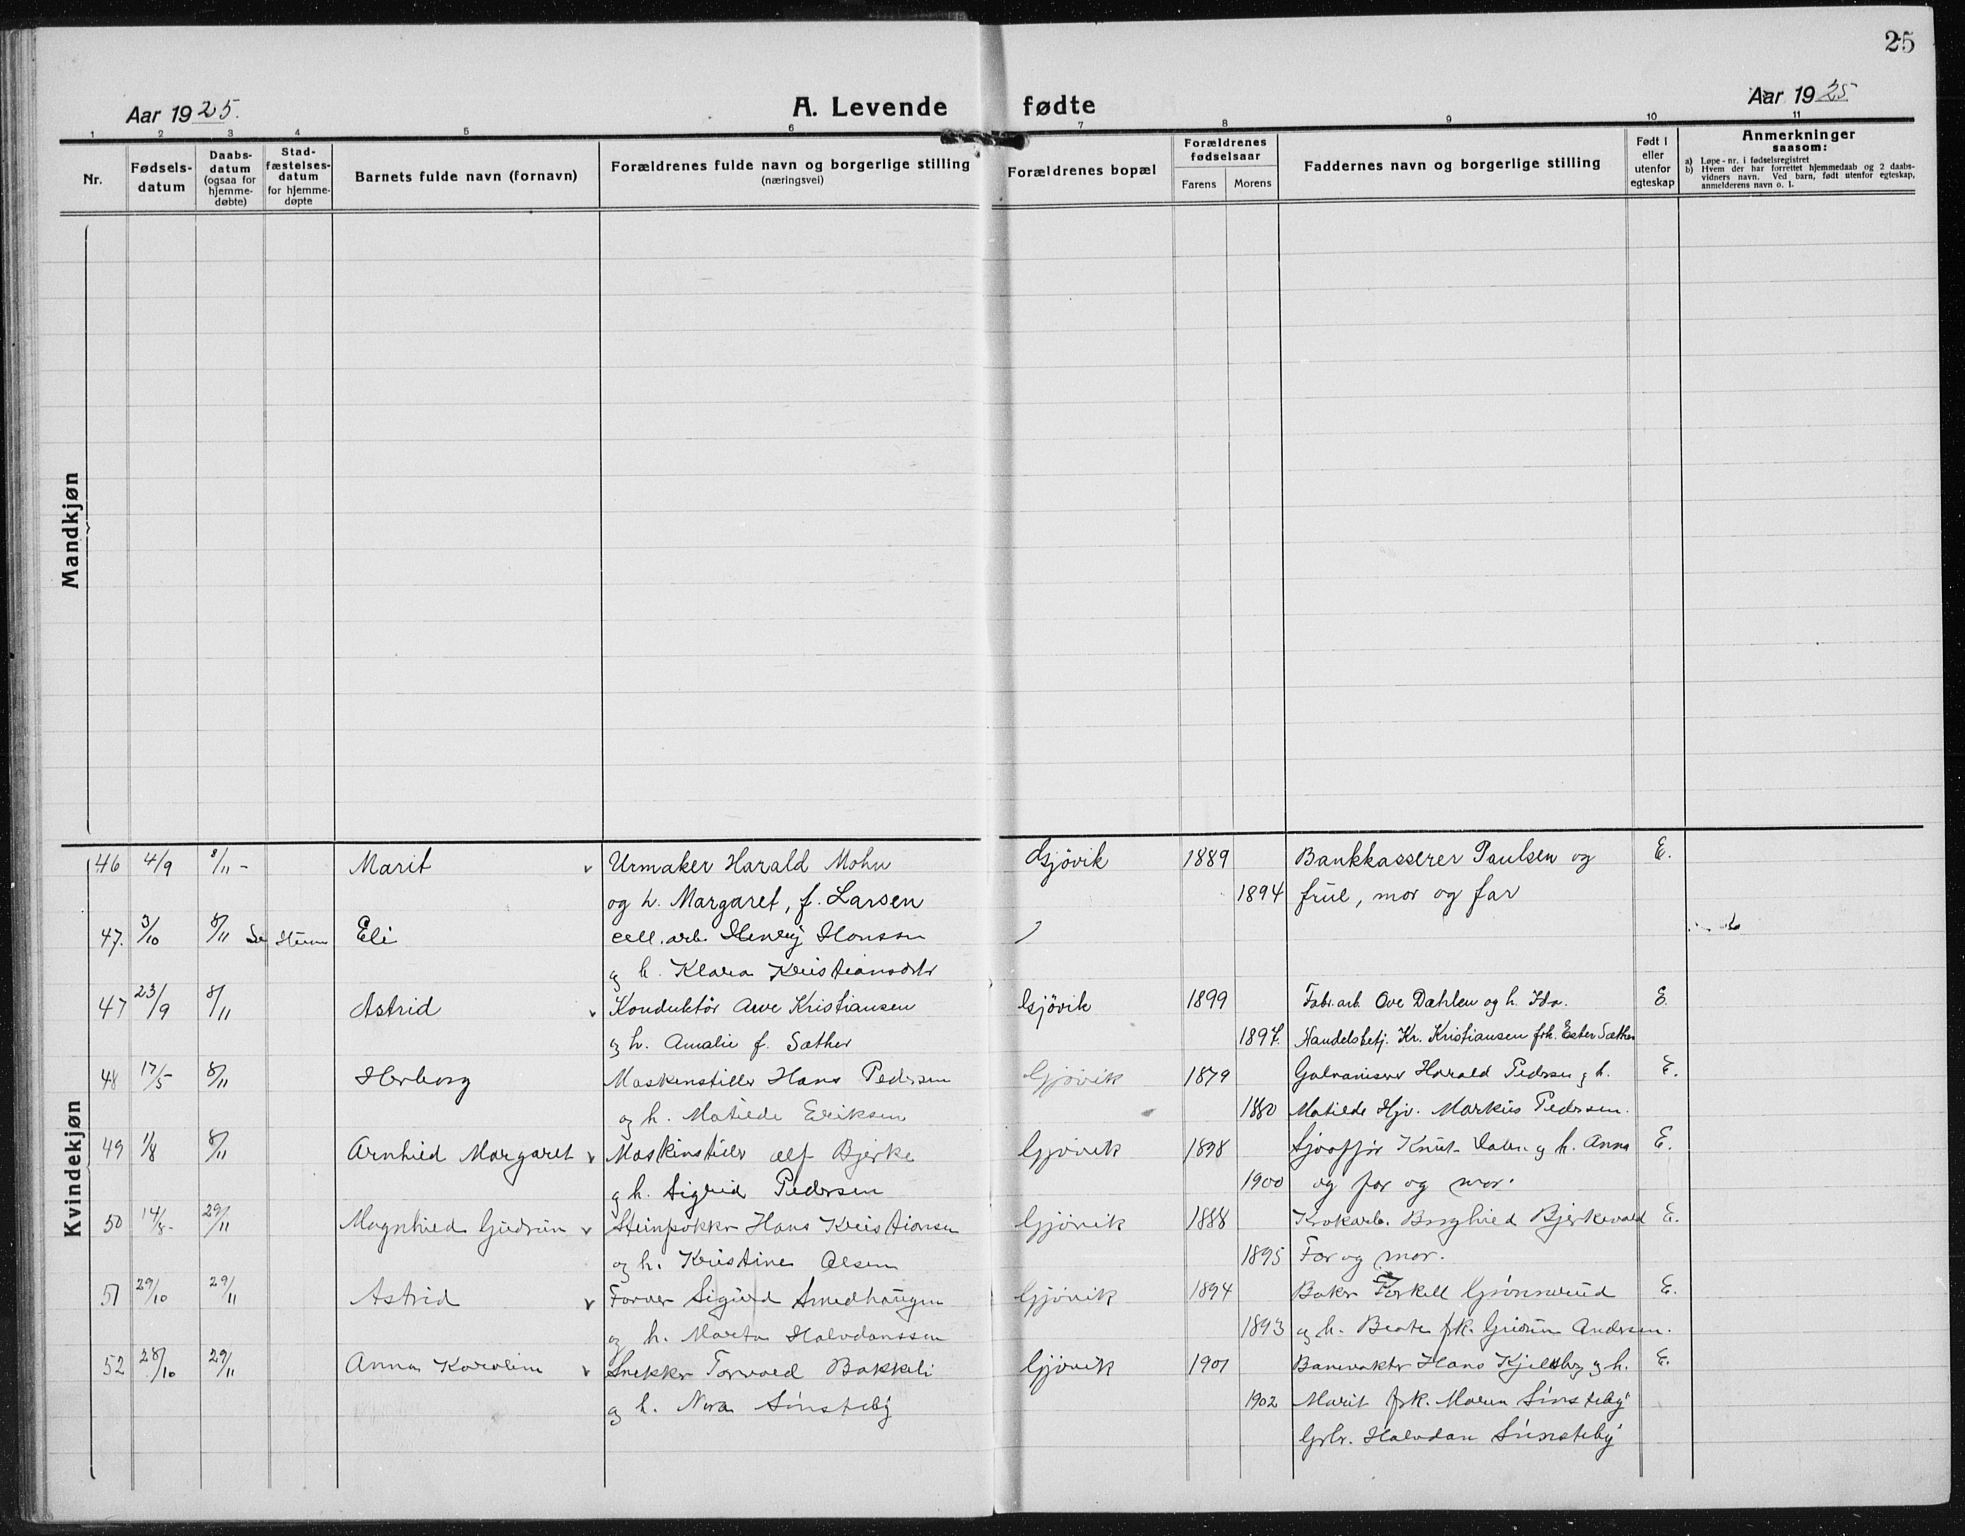 25
Aar 1925.
A. Levende fødte
Aar 1925
1 2 3 4 5 6 7 8 9 10 11
Nr.
Fødsels-
datum
Daabs-
datum
(ogsaa for
hjemme-
døbte)
Stad-
fæstelses-
datum
for hjemme-
døpte
Barnets fulde navn (fornavn)
Forældrenes fulde navn og borgerlige stilling
(næringsvei)
Forældrenes bopæl
Forældrenes
fødselsaar
Farens Morens
Faddernes navn og borgerlige stilling
Født i
eller
utenfor
egteskap
Anmerkninger
saasom:
a) Løpe-nr. i fødselsregistret
b) Hvem der har forrettet hjemmedaab og 2 daabs-
vidners navn. Ved barn, født utenfor egteskap,
anmelderens navn o. l.
Mandkjøn
Kvindekjøn
46 4/9 8/11 - Marit v Urmaker Harald Mohn Gjøvik 1889 Bankkasserer Paulsen og E.
og h. Margaret, f. Larsen 1894 frue, mor og far
47. 3/10 8/11 Eli cell. arb. Henry Hanssen
og h. Klara Kristiansdtr
47 23/9 8/11 Astrid v Konduktør Arve Kristiansen Gjøvik 1899 Fabr. arb. Ove Dæhlen og h. Ida. E
og h. Amalie f. Sæther 1897. Handelsbetj. Kr. Kristiansen frk. Ester Sæther
48 17/5 8/11 Herborg Maskinstiller Hans Pedersen Gjøvik 1879 Galvaniserer Harald Pedersen og h. E.
og h. Matilde Eriksen 1880 Matilde Hjv. Markus Pedersen.
49 1/8 8/11 Arnhild Margaret v Maskinstiller Alf Bjerke Gjøvik 1898 Sjåffør Knut Dalen og h. Anna E.
og h. Sigrid Pedersen 1900 og far og mor.
50 14/8 29/11 Magnhild Gudrun v Steinpukker Hans Kristiansen Gjøvik 1888 Krokarb. Borghild Bjerkevold E.
og h. Kristine Olsen 1895 Far og mor.
51 29/10 29/11 Astrid v Farver Sigurd Smedhaugen Gjøvik 1894 Baker Torkell Grønnerud E.
og h. Marta Halvdanssen 1893 og h. Beate frk. Gudrun Andersen.
52 28/10 29/11 Anna Karoline v Snekker Torvald Bakkeli Gjøvik 1901 Banevakter Hans Kjelsberg og h. E.
og h. Nora Sinsteby 1902 Marit frk. Maren Sinsteby
Grbr. Halvdan Sinsteby